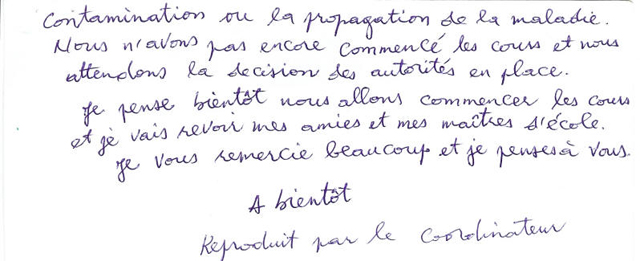 Contamination ou la propagation de la maladie.
Nous n'avons pas encore commencé les cours et nous
attendons la decision des autorités en place.
Je pense bientôt nous allons commencer les cours
et je vais revoir mes amies et mes maîtres d'école.
Je vous remercie beaucoup et je penses à vous.
A bientôt
Reproduit par le coordinateur